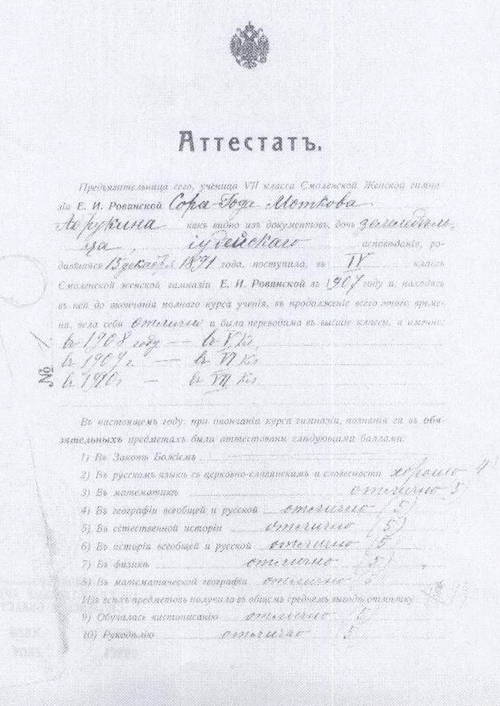 Аттестатъ.
Предъявительница сего, ученица VII класса Смоленской Женской гимна-
зіи Е. И. Рованской Сора-Года Моткова
какъ видно изъ документовъ, дочь
іудейскаго исповѣданія, ро-
дившаяся 13 декабря 1891 года, поступила, въ IV классъ
Смоленской женской гимназіи Е. И. Рованской въ 1907 году и, находясь
въ ней до окончанія полнаго курса ученія, въ продолженіе всего этого време-
ни, вела себя отлично и была переводима въ высшіе классы, а именно:
въ 1908 году — въ V кл.
въ 1909 г. — въ VI кл.
въ 1910 г. — въ VII кл.
№ 1
Въ настоящемъ году, при окончаніи курса гимназіи, познанія ея въ обя-
зательныхъ предметахъ были аттестованы слѣдующими баллами:
1) Въ Законѣ Божіемъ
2) Въ русскомъ языкѣ съ церковно-славянскимъ и словесности хорошо 4
3) Въ математикѣ отлично 5
4) Въ географіи всеобщей и русской отлично (5)
5) Въ естественной исторіи отлично (5)
6) Въ исторіи всеобщей и русской отлично (5)
7) Въ физикѣ отлично (5)
8) Въ математической географіи отлично
Изъ всѣхъ предметовъ получила въ общемъ среднемъ выводѣ отмѣтку
9) Обучалась чистописанію отлично 5
10) Рукодѣлію отлично 5